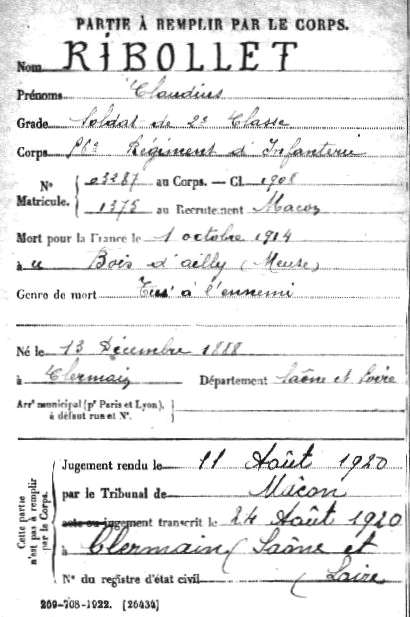 PARTIE À REMPLIR PAR LE CORPS.
Nom RIBOLLET
Prénoms Claudius
Grade Soldat de 2e Classe
Corps 56e Régiment d'Infanterie
Nº Matricule. { 03287 au Corps. — Cl. 1908
1375 au Recrutement Macon
Mort pour la France le 1 octobre 1914
à au Bois d'ailly (Meuse)
Genre de mort Tué à l'ennemi
Né le 13 Décembre 1888
à Clermain Département Saône et Loire
Arrt municipal (pr Paris et Lyon), à défaut rue et Nº.
Cette partie n'est pas à remplir par le Corps.
Jugement rendu le 11 Août 1920
par le Tribunal de Mâcon
acte ou jugement transcrit le 24 Août 1920
à Clermain (Saône et Loire
Nº du registre d'état civil
269-708-1922. [26434]